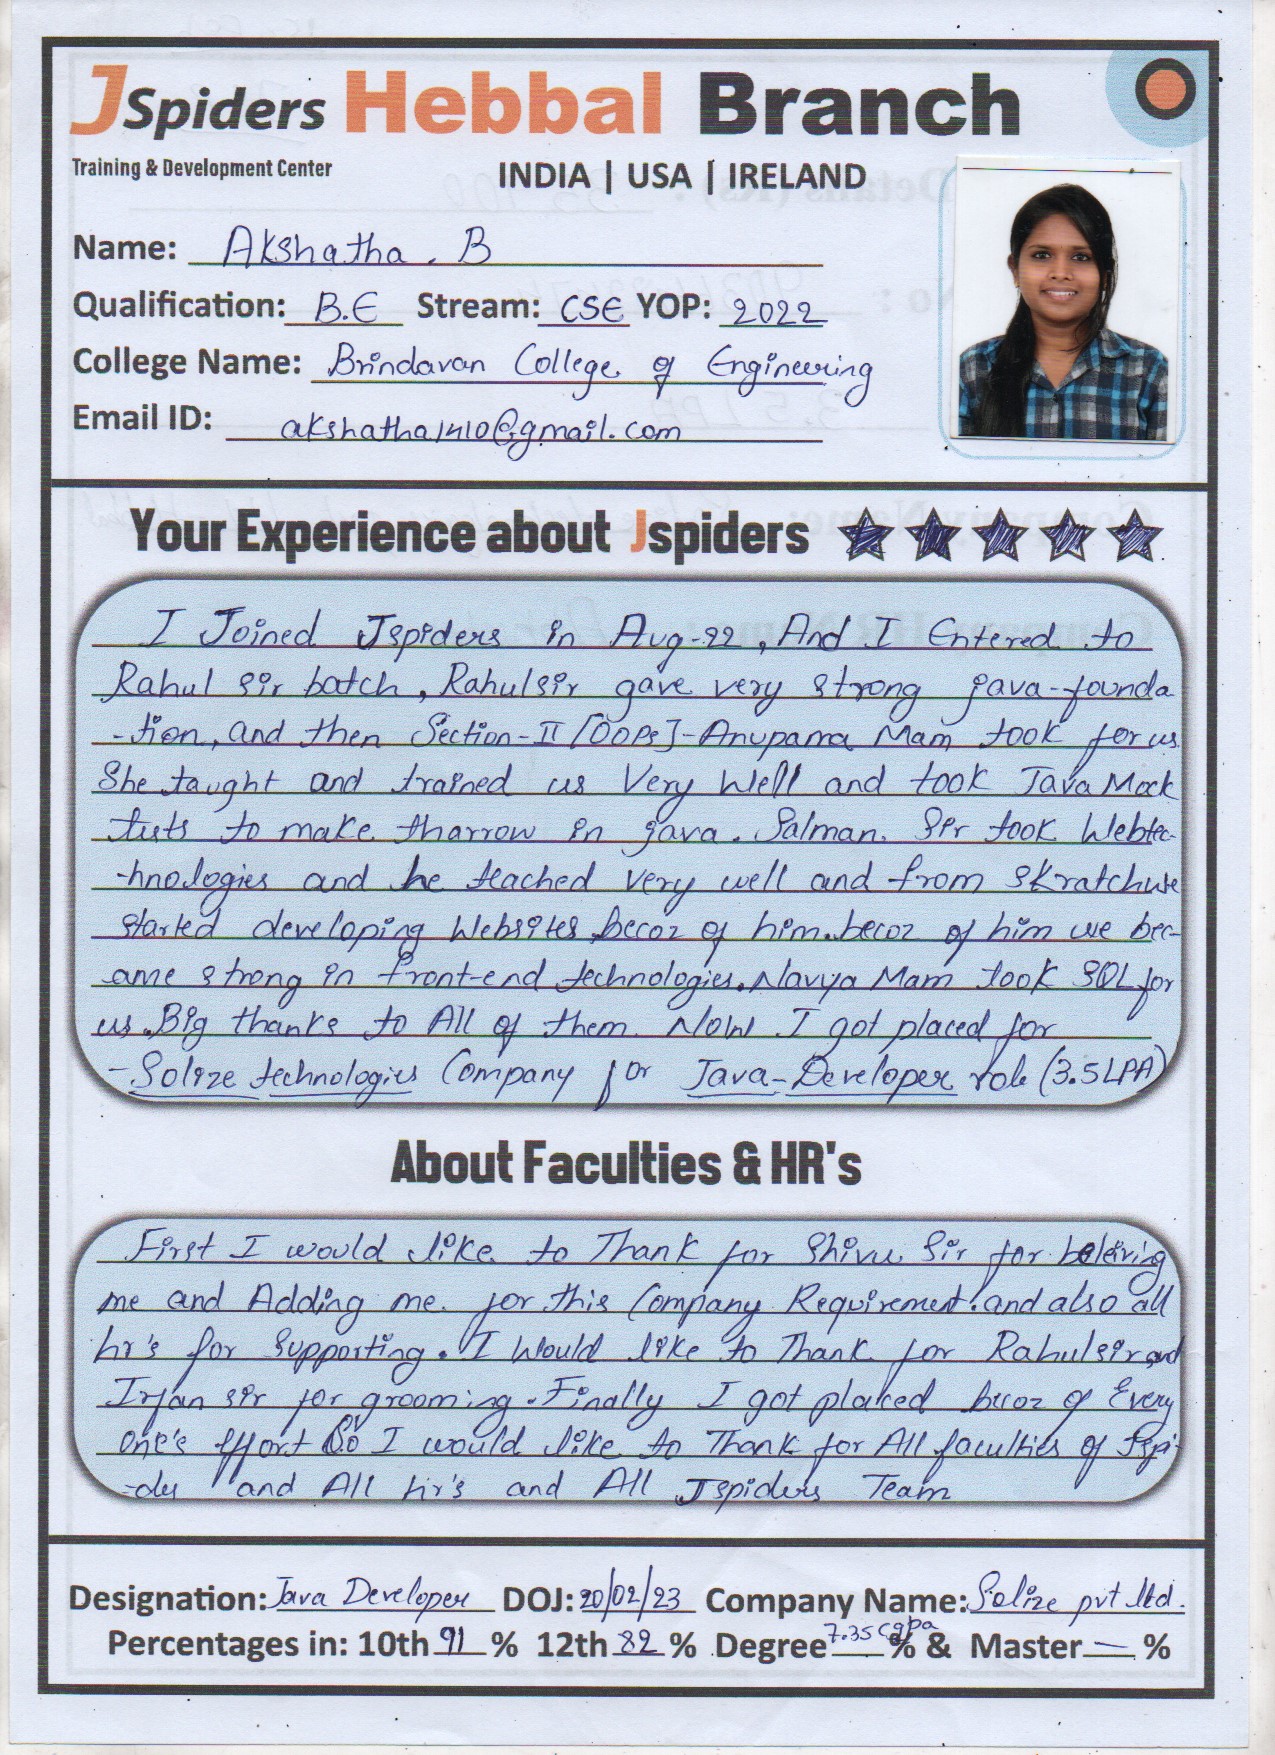 JSpiders Hebbal Branch
Training & Development Center INDIA | USA | IRELAND
Name: Akshatha . B
Qualification: B.E Stream: CSE YOP: 2022
College Name: Brindavan College of Engineering
Email ID: akshatha1410@gmail.com
Your Experience about Jspiders
I Joined Jspiders in Aug-22, And I Entered to
Rahul sir batch, Rahul sir gave very strong java-founda
-tion, and then Section-II [OOPs]-Anupama Mam took for us.
She taught and trained us Very Well and took Java Mock
tests to make tharrow in java. Salman. Sir took Webtec-
-hnologies and he teached very well and from skratch we
started developing Websites, becoz of him. becoz of him we bec-
ame strong in front-end technologies. Navya Mam took SQL for
us. Big thanks to All of them. Now I got placed for
-Solize technologies Company for Java-Developer role (3.5LPA)
About Faculties & HR's
First I would like to Thank for Shivu Sir for beleiving
me and Adding me for this Company Requirement. and also all
hr's for Supporting. I Would like to Thank for Rahul sir and
Irfan sir for grooming. Finally I got placed becoz of Every
one's effort So I would like to Thank for All faculties of Jspi-
-ders and All hr's and All Jspiders Team
Designation: Java Developer DOJ: 20/02/23 Company Name: Solize pvt ltd.
Percentages in: 10th 91 % 12th 82 % Degree 7.35 cgpa % & Master — %